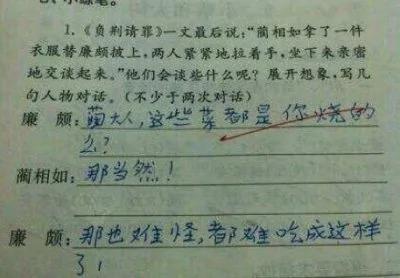 1.《负荆请罪》一文最后说:“蔺相如拿了一件
衣服替廉颇披上,两人紧紧地拉着手,坐下来亲密
地交谈起来。”他们会谈些什么呢? 展开想象,写几
句人物对话。(不少于两次对话)
廉 颇:蔺大人,这些菜都是你烧的
么?
蔺相如:那当然!
廉 颇:那也难怪,都难吃成这样
了!